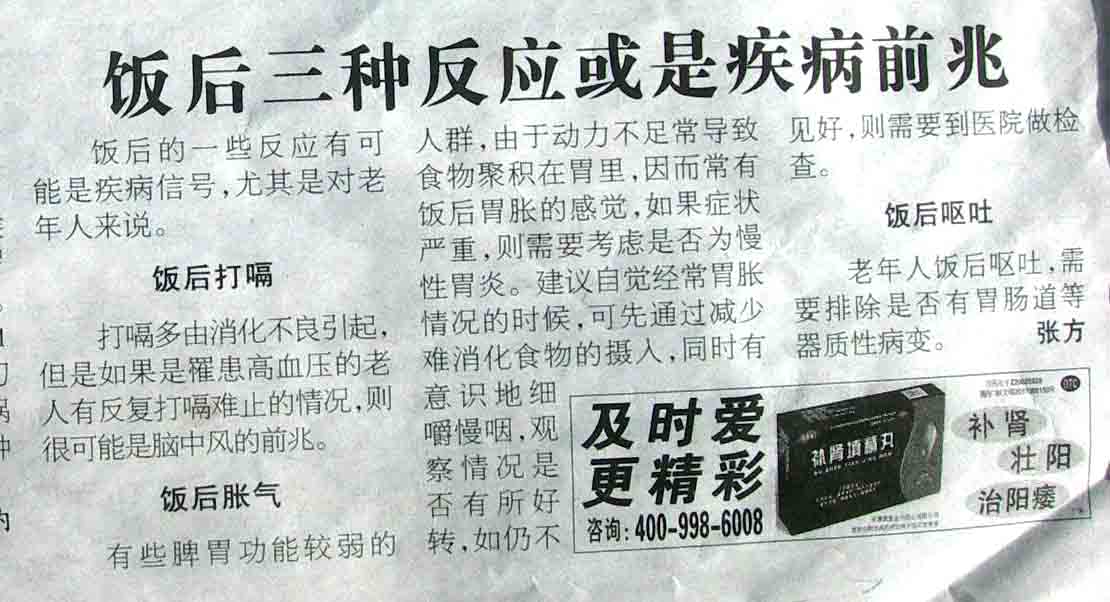 饭后三种反应或是疾病前兆
饭后的一些反应有可
能是疾病信号,尤其是对老
年人来说。
饭后打嗝
打嗝多由消化不良引起,
但是如果是罹患高血压的老
人有反复打嗝难止的情况,则
很可能是脑中风的前兆。
饭后胀气
有些脾胃功能较弱的
人群,由于动力不足常导致
食物聚积在胃里,因而常有
饭后胃胀的感觉,如果症状
严重,则需要考虑是否为慢
性胃炎。建议自觉经常胃胀
情况的时候,可先通过减少
难消化食物的摄入,同时有
意识地细
嚼慢咽,观
察情况是
否有所好
转,如仍不
见好,则需要到医院做检
查。
饭后呕吐
老年人饭后呕吐,需
要排除是否有胃肠道等
器质性病变。 张方
及时爱
更精彩
咨询:400-998-6008
补肾填精丸
BU SHEN TIAN JING WAN
OTC
补肾
壮阳
治阳痿